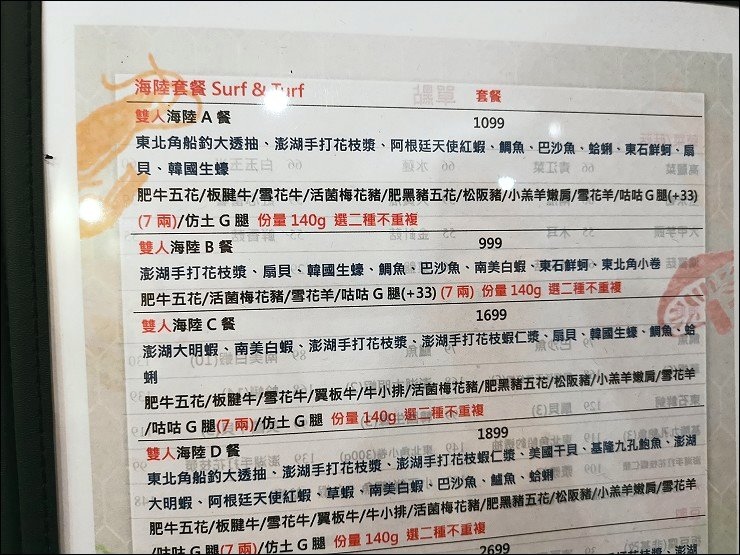 海陸套餐 Surf & Turf 套餐
雙人海陸 A 餐 1099
東北角船釣大透抽、澎湖手打花枝漿、阿根廷天使紅蝦、鯛魚、巴沙魚、蛤蜊、東石鮮蚵、扇
貝、韓國生蠔
肥牛五花/板腱牛/雪花牛/活菌梅花豬/肥黑豬五花/松阪豬/小羔羊嫩肩/雪花羊/咕咕 G 腿(+33)
(7 兩)/仿土 G 腿 份量 140g 選二種不重複
雙人海陸 B 餐 999
澎湖手打花枝漿、扇貝、韓國生蠔、鯛魚、巴沙魚、南美白蝦、東石鮮蚵、東北角小卷
肥牛五花/活菌梅花豬/雪花羊/咕咕 G 腿(+33) (7 兩) 份量 140g 選二種不重複
雙人海陸 C 餐 1699
澎湖大明蝦、南美白蝦、澎湖手打花枝漿、澎湖手打花枝蝦仁漿、扇貝、韓國生蠔、鯛魚、蛤
蜊
肥牛五花/板腱牛/雪花牛/翼板牛/牛小排/活菌梅花豬/肥黑豬五花/松阪豬/小羔羊嫩肩/雪花羊
/咕咕 G 腿(7 兩)/仿土 G 腿 份量 140g 選二種不重複
雙人海陸 D 餐 1899
東北角船釣大透抽、澎湖手打花枝漿、澎湖手打花枝蝦仁漿、美國干貝、基隆九孔鮑魚、澎湖
大明蝦、阿根廷天使紅蝦、草蝦、南美白蝦、巴沙魚、鱸魚、蛤蜊
肥牛五花/板腱牛/雪花牛/翼板牛/牛小排/活菌梅花豬/肥黑豬五花/松阪豬/小羔羊嫩肩/雪花羊
/咕咕 G 腿(7 兩)/仿土 G 腿 份量 140g 選二種不重複
2699